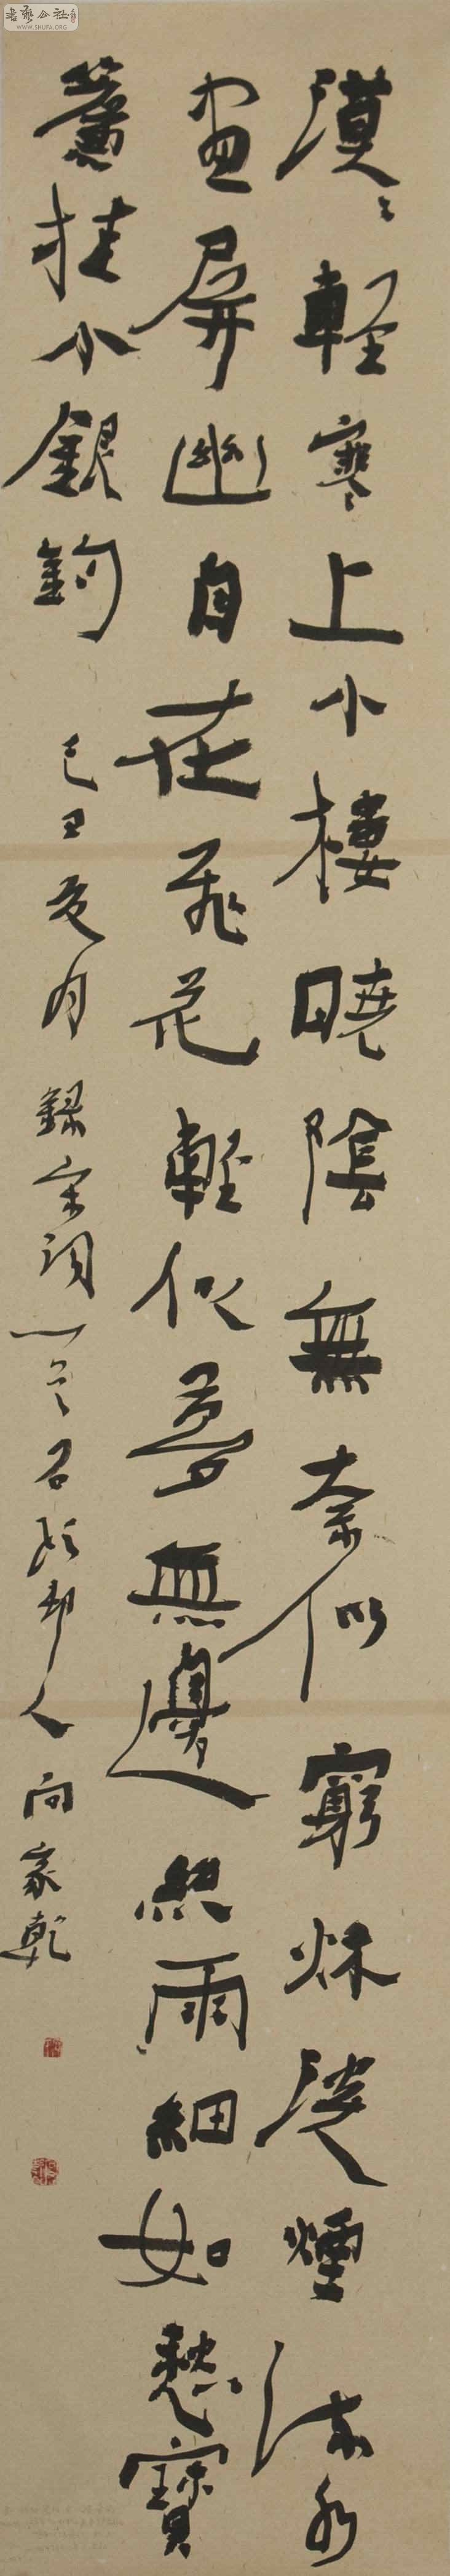 書藝公社
WWW.SHUFA.ORG
漠〻輕寒上小樓曉陰無奈似窮秋淡煙流水
畫屏幽自在飛花輕似夢無邊絲雨細如愁寶
簾挂小銀鉤 己丑夏月錄宋詞一首 邨人向家乾